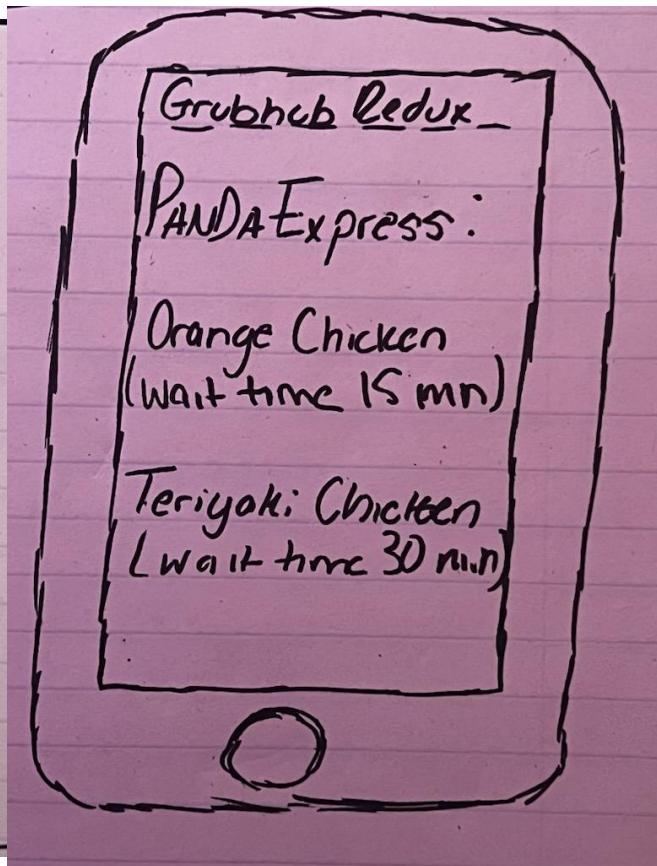 Grubhub Redux
PANDA Express:
Orange Chicken
(wait time 15 mn)
Teriyaki Chicken
(wait time 30 min)